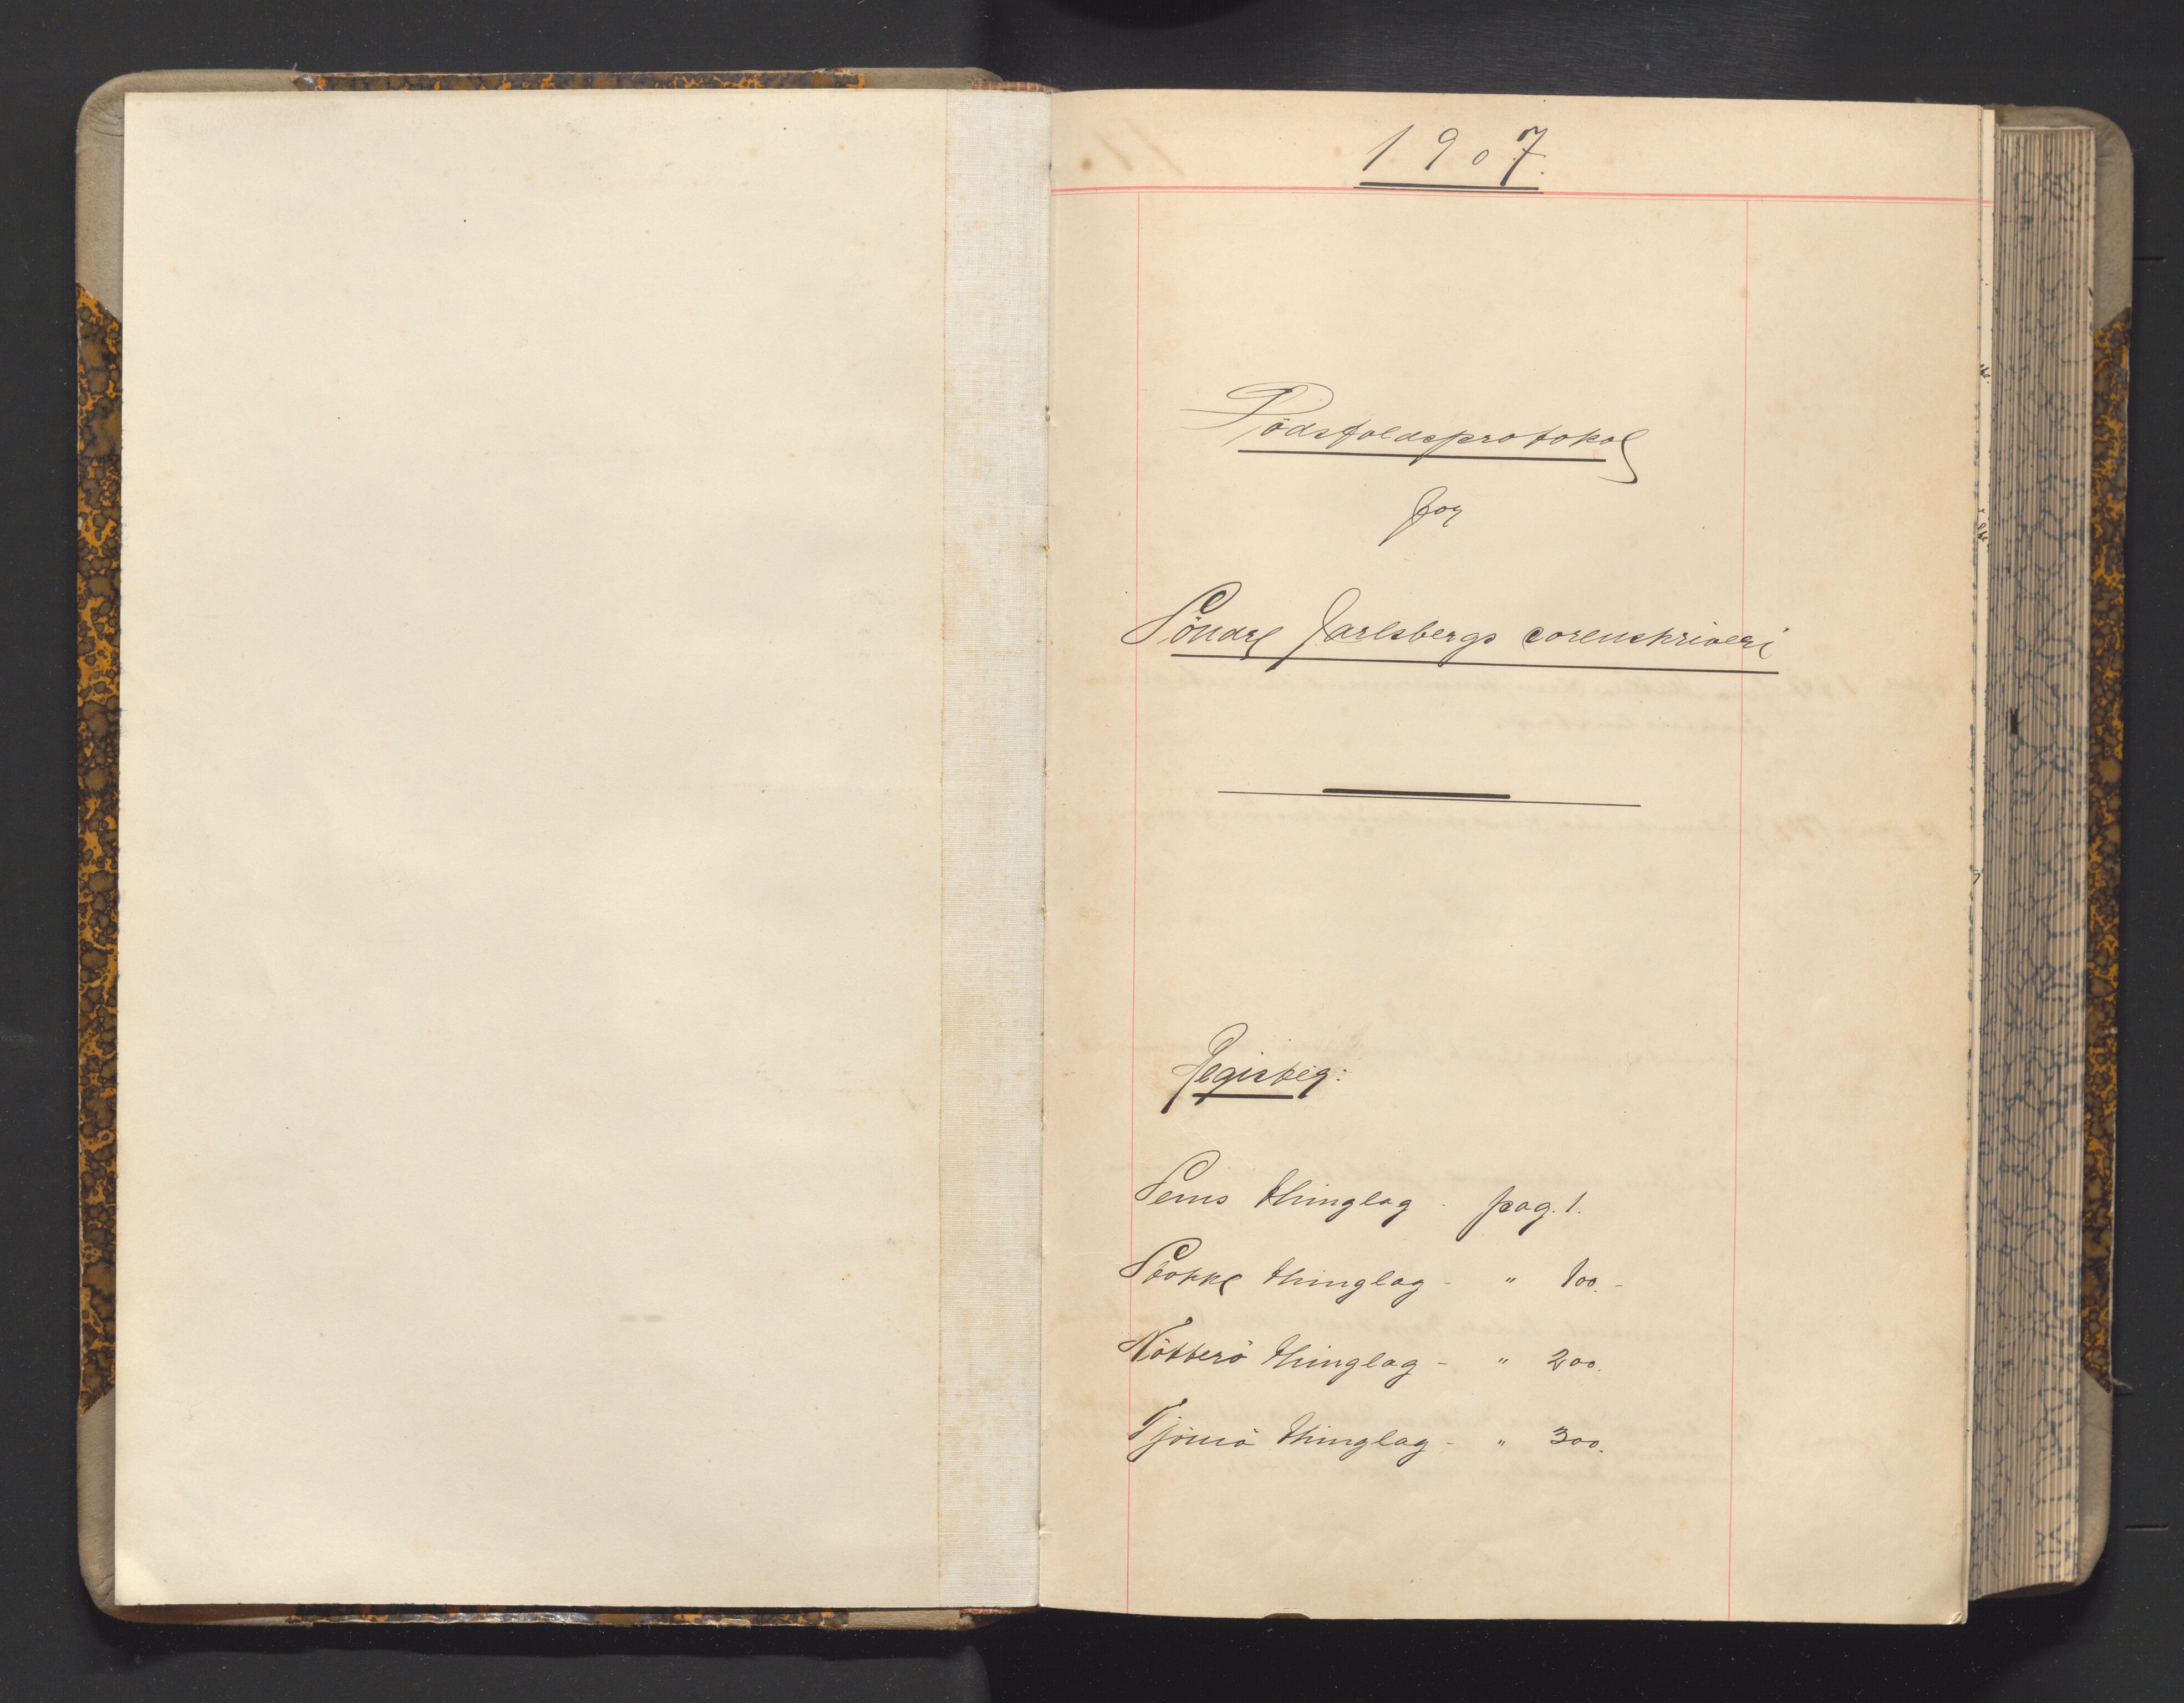 1907.
Dödsfaldsprotokol
for
Söndre Jarlsbergs sorenskriveri
Register:
Sems thinglag - pag. 1.
Stokke thinglag - " 100.-
Nötterö thinglag - " 200.
Tjömö thinglag - " 300.